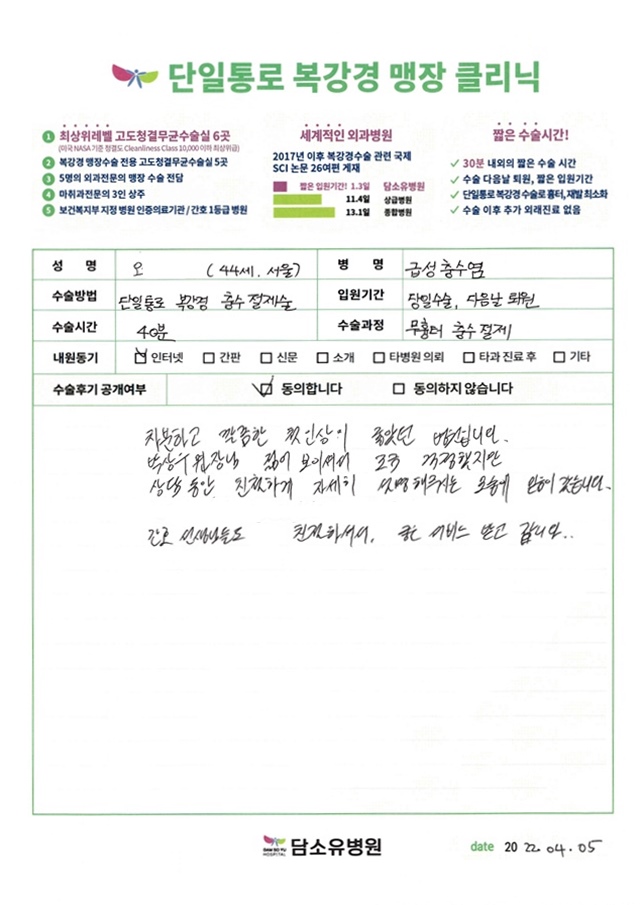 단일통로 복강경 맹장 클리닉
1 최상위레벨 고도청결무균수술실 6곳
(미국 NASA 기준 청결도 Cleanliness Class 10,000 이하 최상위급)
2 복강경 맹장수술 전용 고도청결무균수술실 5곳
3 5명의 외과전문의 맹장 수술 전담
4 마취과전문의 3인 상주
5 보건복지부 지정 병원 인증의료기관 / 간호 1등급 병원
세계적인 외과병원
2017년 이후 복강경수술 관련 국제
SCI 논문 26여편 게재
짧은 입원기간! 1.3일 담소유병원
11.4일 상급병원
13.1일 종합병원
짧은 수술시간!
✓ 30분 내외의 짧은 수술 시간
✓ 수술 다음날 퇴원, 짧은 입원기간
✓ 단일통로 복강경 수술로 흉터, 재발 최소화
✓ 수술 이후 추가 외래진료 없음
성 명 오 (44세. 서울) 병 명 급성충수염
수술방법 단일통로 복강경 충수절제술 입원기간 당일수술, 다음날 퇴원
수술시간 40분 수술과정 무흉터 충수절제
내원동기 ☑ 인터넷 ☐ 간판 ☐ 신문 ☐ 소개 ☐ 타병원 의뢰 ☐ 타과 진료 후 ☐ 기타
수술후기 공개여부 ☑ 동의합니다 ☐ 동의하지 않습니다
차분하고 깔끔한 첫인상이 좋았던 병원입니다.
박상우 원장님 젊어 보이셔서 조금 걱정했지만
상담 동안 친절하게 자세히 설명해주시는 모습에 안심이 갔습니다.
간호 선생님들도 친절하셔서, 좋은 서비스 받고 갑니다..
DAM SO YU
HOSPITAL
담소유병원
date 2022.04.05